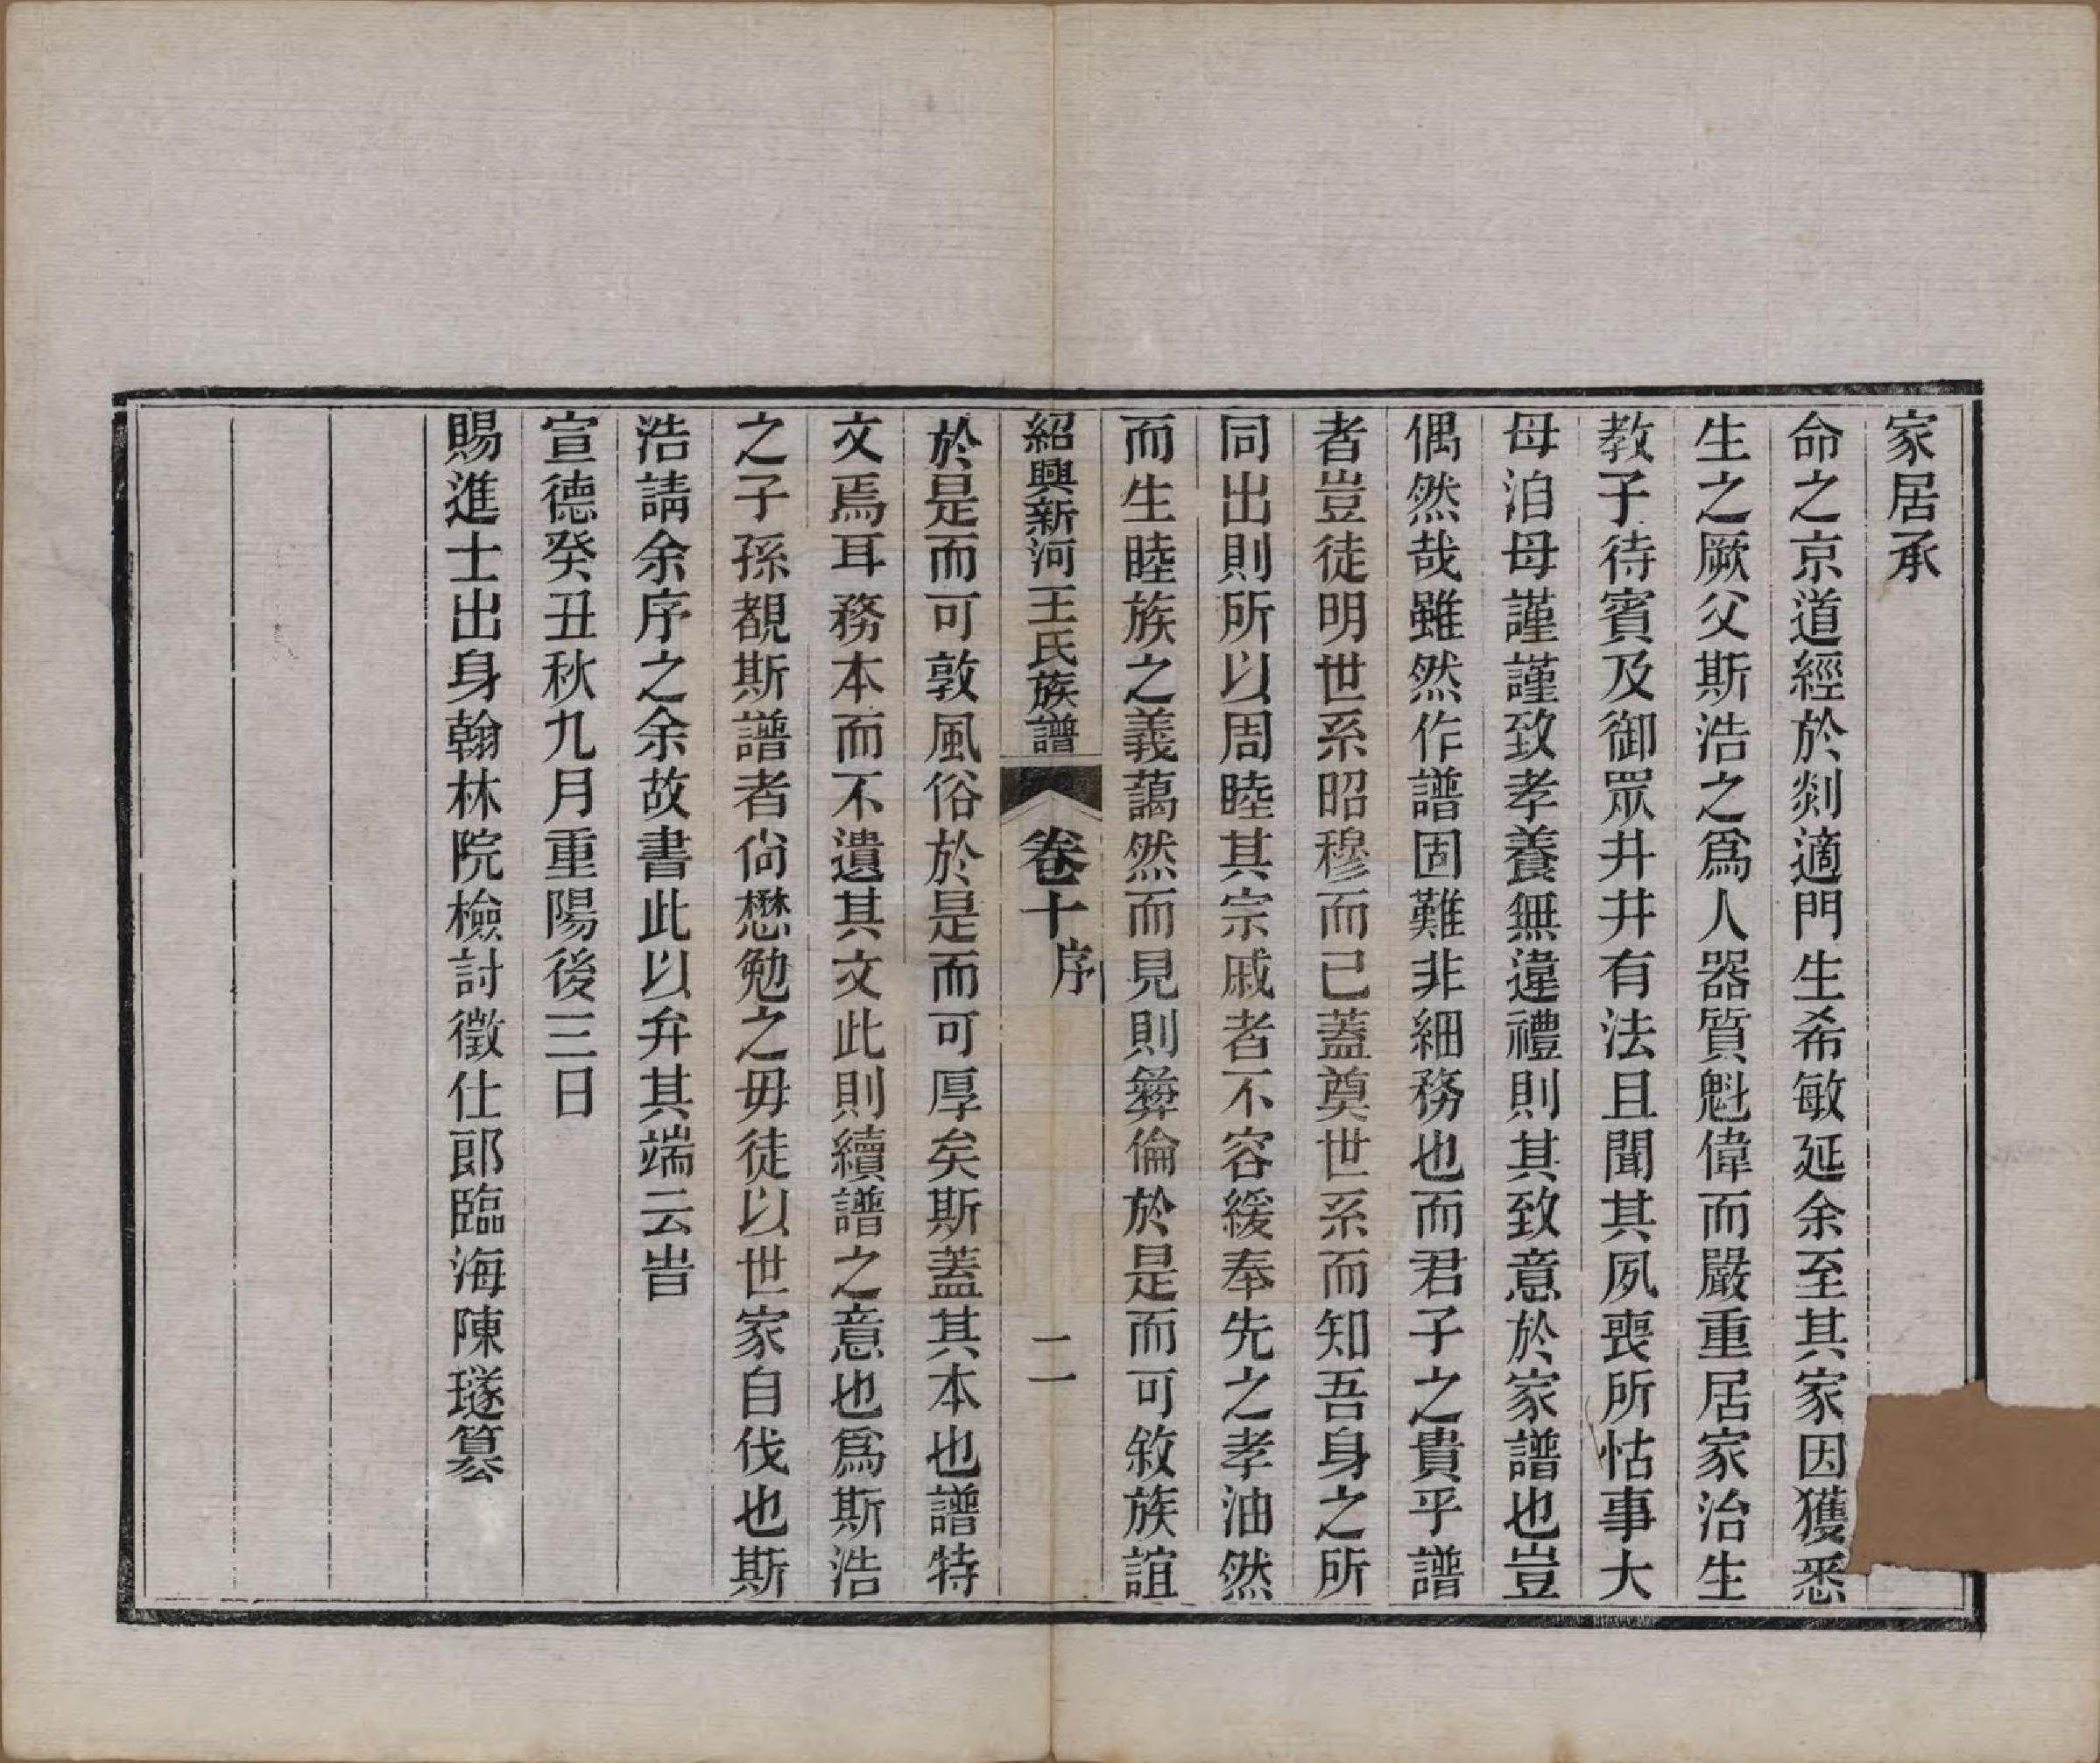 家居承
命之京道經於剡適門生希敏延余至其家因獲悉
生之厥父斯浩之爲人器質魁偉而嚴重居家治生
教子待賓及御眾井井有法且聞其夙喪所怙事大
母洎母謹謹致孝養無違禮則其致意於家譜也豈
偶然哉雖然作譜固難非細務也而君子之貴乎譜
者豈徒明世系昭穆而已蓋奠世系而知吾身之所
同出則所以周睦其宗戚者不容緩奉先之孝油然
而生睦族之義藹然而見則彝倫於是而可敘族誼
紹興新河王氏族譜 卷十序 二
於是而可敦風俗於是而可厚矣斯蓋其本也譜特
文焉耳務本而不遺其文此則續譜之意也爲斯浩
之子孫覩斯譜者尙懋勉之毋徒以世家自伐也斯
浩請余序之余故書此以弁其端云旹
宣德癸丑秋九月重陽後三日
賜進士出身翰林院檢討徵仕郎臨海陳璲篹